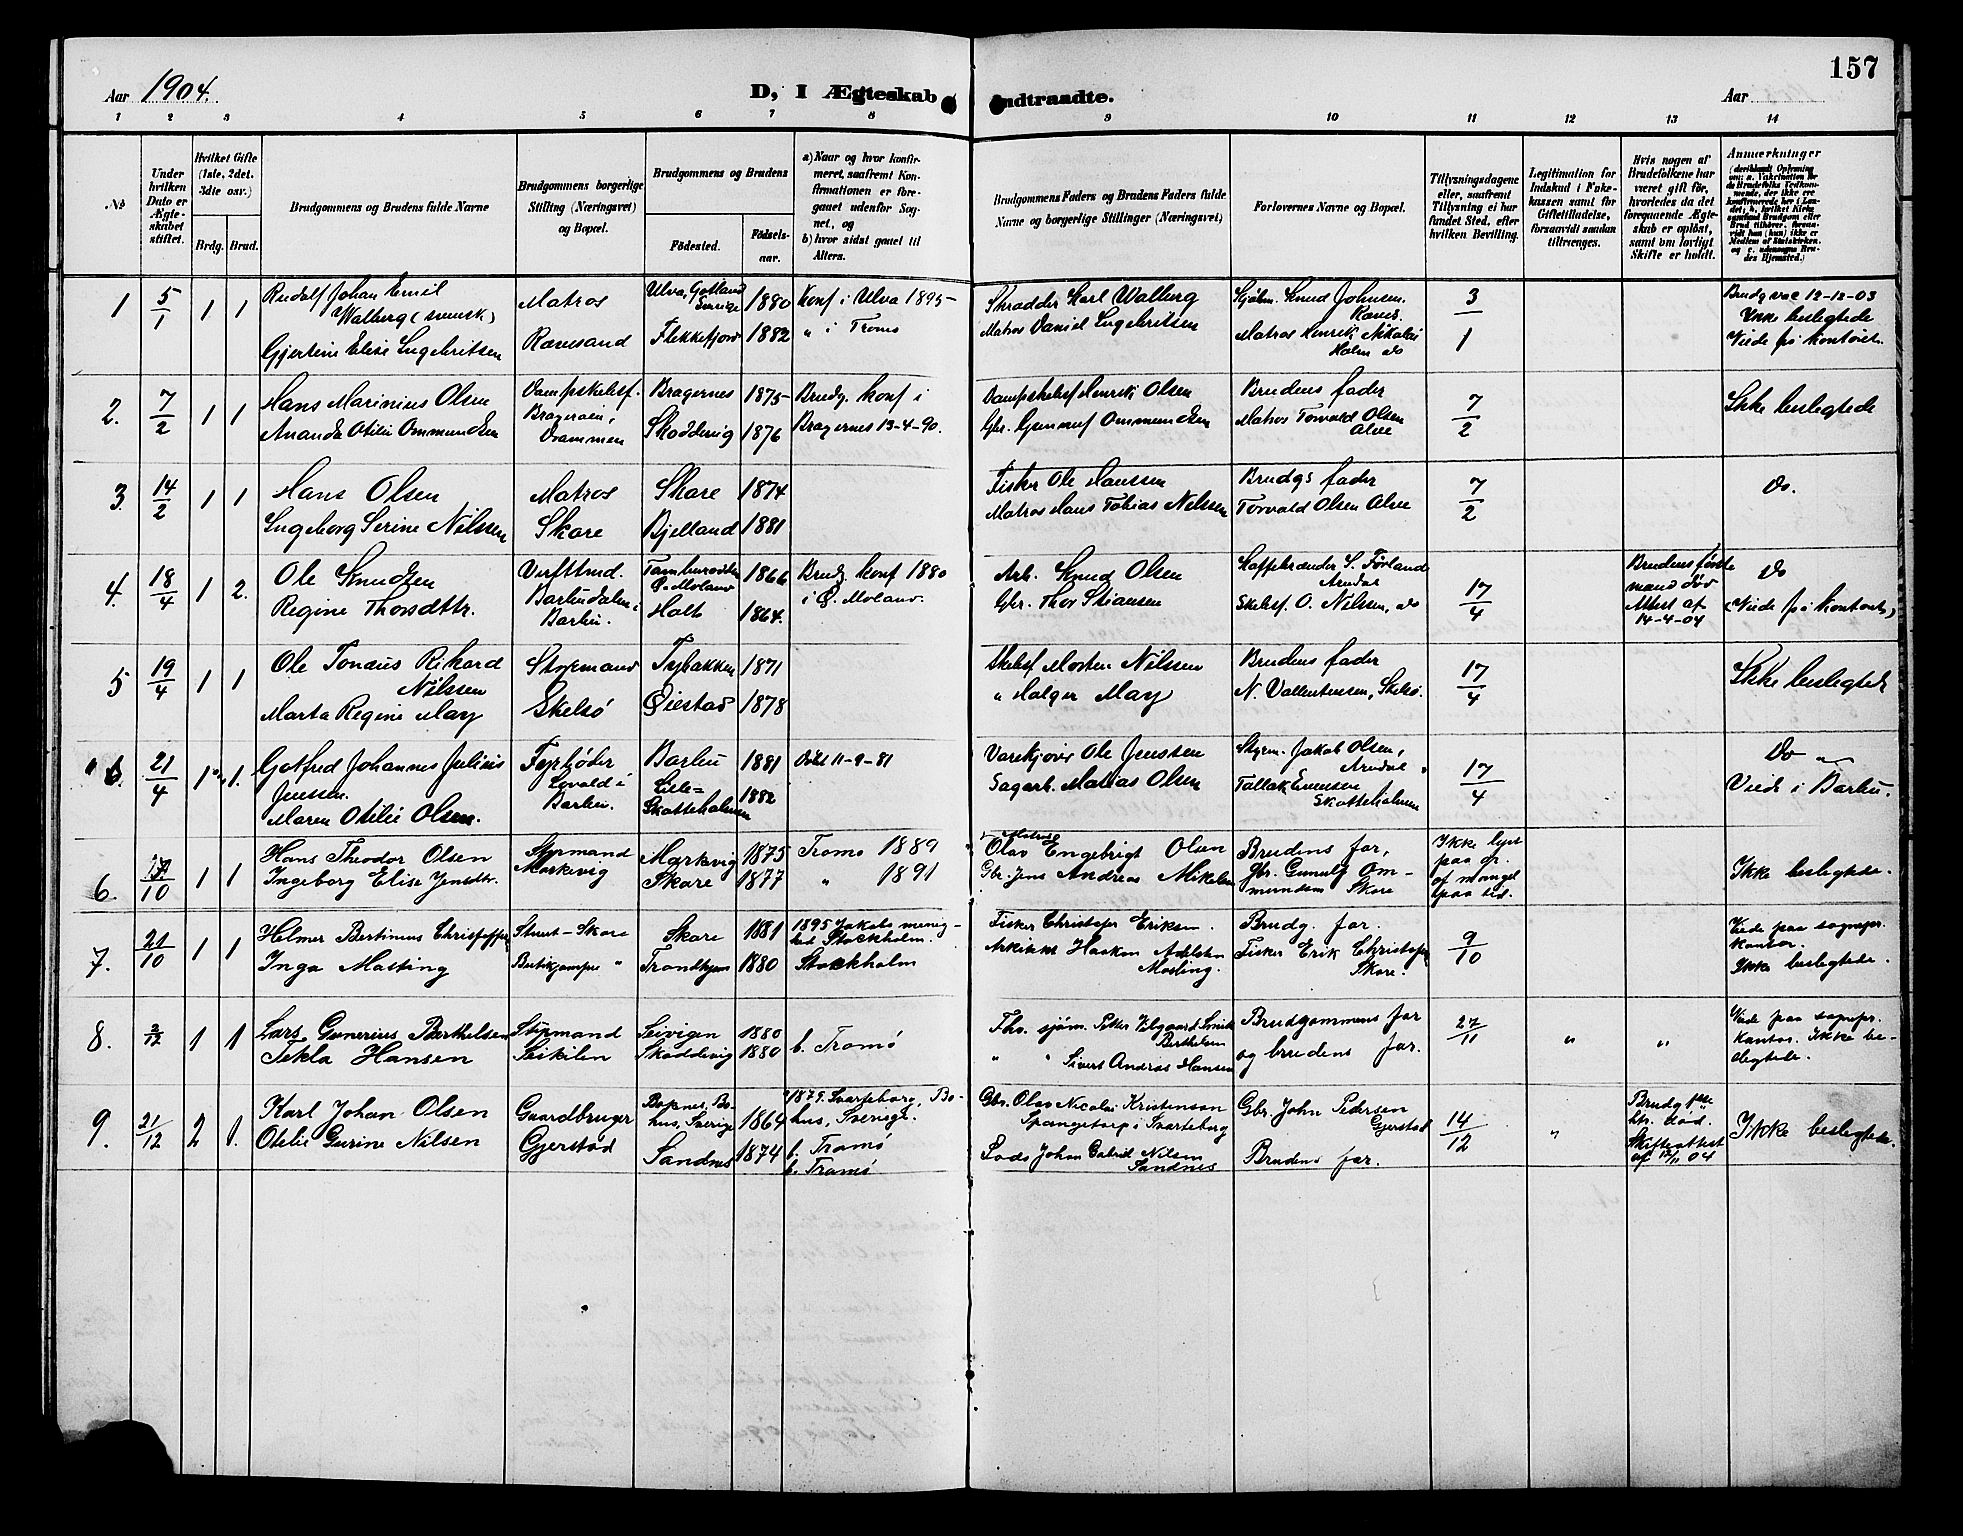 157
Aar 1904.
D, I Ægteskab Indtraadte.
Aar
1 2 3 4 5 6 7 8 9 10 11 12 13 14
No
Under hvilken Dato er Ægteskabet stiftet.
Hvilket Gifte (1ste, 2det, 3die osv.)
Brdg. Brud.
Brudgommens og Brudens fulde Navne
Brudgommens borgerlige Stilling (Næringsvei) og Bopæl.
Brudgommens og Brudens
Fødested. Fødselsaar.
a) Naar og hvor konfirmeret, saafremt Konfirmationen er foregaaet udenfor Sognet, og
b) hvor sidst gaaet til Alters.
Brudgommens Faders og Brudens Faders fulde Navne og borgerlige Stillinger (Næringsvei)
Forlovernes Navne og Bopæl.
Tillysningsdagene eller, saafremt Tillysning ei har fundet Sted, efter hvilken Bevilling.
Legitimation for Indskud i Enkekassen samt for Giftetilladelse, forsaavidt saadan tiltrænges.
Hvis nogen af Brudefolkene har været gift før, hvorledes da det foregaaende Ægteskab er opløst, samt om lovligt Skifte er holdt.
Anmerkninger
1 5/1 1 1 Rudolf Johan Emil Walberg (svensk) Matros Ulva, Gotland Sverige 1880 Konf i Ulva 1895 Skrædder Karl Walberg Sjøm. Knud Johnsen 3/1 Brudg vac 12-12-03
Gjertine Elise Ingebritsen Rævesand Flekkefjord 1882 " i Tromø Matros Daniel Ingebritsen Matros Henrik Nikolai Holm do Ikke beslegtede
Viede på kontoret.
2. 7/2 1 1 Hans Marinius Olsen Dampskibsf. Bragernes 1875 Brudg. Konf i Dampskibsf Henrik Olsen Brudens fader 7/2 Ikke beslegtede
Amanda Otilie Ommundsen Drammen Skoddevig 1876 Bragernes 13-4-90. Gbr. Gunnuf Ommundsen Matros Torvald Olsen Alve
3. 14/2 1 1 Hans Olsen Matros Skare 1874 Fisker Ole Hanssen Brudgs fader 7/2 Do.
Ingeborg Serine Nilssen Skare Bjelland 1881 Matros Hans Tobias Nilssen Torvald Olsen Alve
4. 18/4 1 2. Ole Knudsen Ø. Moland 1866 Brudg. Konf 1880 Arb. Knud Olsen Kaffebrænder S. Førland Arendal 17/4 Brudens første mand død Do
Regine Thorsdttr. Barbu. Holt 1864. i Ø. Moland. Gbr. Thor Stiansen Skibsf. O. Nilssen, do Attest af 14-4-04 (Viede på kontoret)
5 19/4 1 1 Ole Tonæus Rikard Nilssen Styrmand Tybakken 1871 Skibsf Morten Nilssen Brudens fader 17/4 Ikke beslegtede
Marta Regine May Skilsø Øiestad 1878 " Holger May N. Vallentinsen, Skilsø.
6. 21/4 1 1. Gotfred Johannes Julius Jenssen. Fyrbøder Barbu 1881 Døbt 11-9-81 Ole Jenssen Styrm. Jakob Olsen, Arendal 17/4 Do
Maren Otilie Olsen. Barbu. Lille-Skottholmen 1882 Sagarb. Matias Olsen Tallak Evensen Skottholmen Viede i Barbu.
6. /10 1 1 Hans Theodor Olsen Styrmand Markevig 1875 Tromø 1889 Matros Olav Engebrigt Olsen Brudens far, Ikke lyst paa gr. af mangel paa tid. Ikke beslegtede.
Ingeborg Elise Jensdtr. Markevig Skare 1877 " 1891 Gbr. Jens Andreas Mikelsen Gbr. Gunulf Ommundsen Skare
7. 21/10 1 1 Helmer Bertinius Christoffersen Stuert - Skare Skare 1881 1895 Jakobs menighed Stockholm. Fisker Christofer Eriksen. Brudg. far. 9/10 Viede paa sognepr. kontor.
Inga Mosling Trondhjem 1880 Stockholm Arkitekt Haakon Adelsten Mosling. Fisker Erik Christofersen Skare. Ikke beslegtede.
8. 2/12 1 1 Lars Gunerius Berthelsen Styrmand Seivigen 1880 b. Tromø Fhv. sjøm. Petter Berthelsen Brudgommens far 27/11 " " Viede paa sognepr. kontor. Ikke beslegtede.
Tekla Hansen Skoddevig 1880 " " Sivert Andreas Hansen og brudens far.
9. 21/12 2 1. Karl Johan Olsen Gaardbruger Bohus, Sverige 1864 1879. Svarteborg, Bohus, Sverige. Gbr. Olav Nicolai Kristenson Gbr. John Pedersen Gjerstad 14/12 " Brudg. første htr. død. Ikke beslegtede.
Otilie Gurine Nilsen Gjerstad Sandnes 1874 b. Tromø Lods Johan Gabriel Nilsen Sandnes Brudens far. Skifteattest af 04
b. Tromø